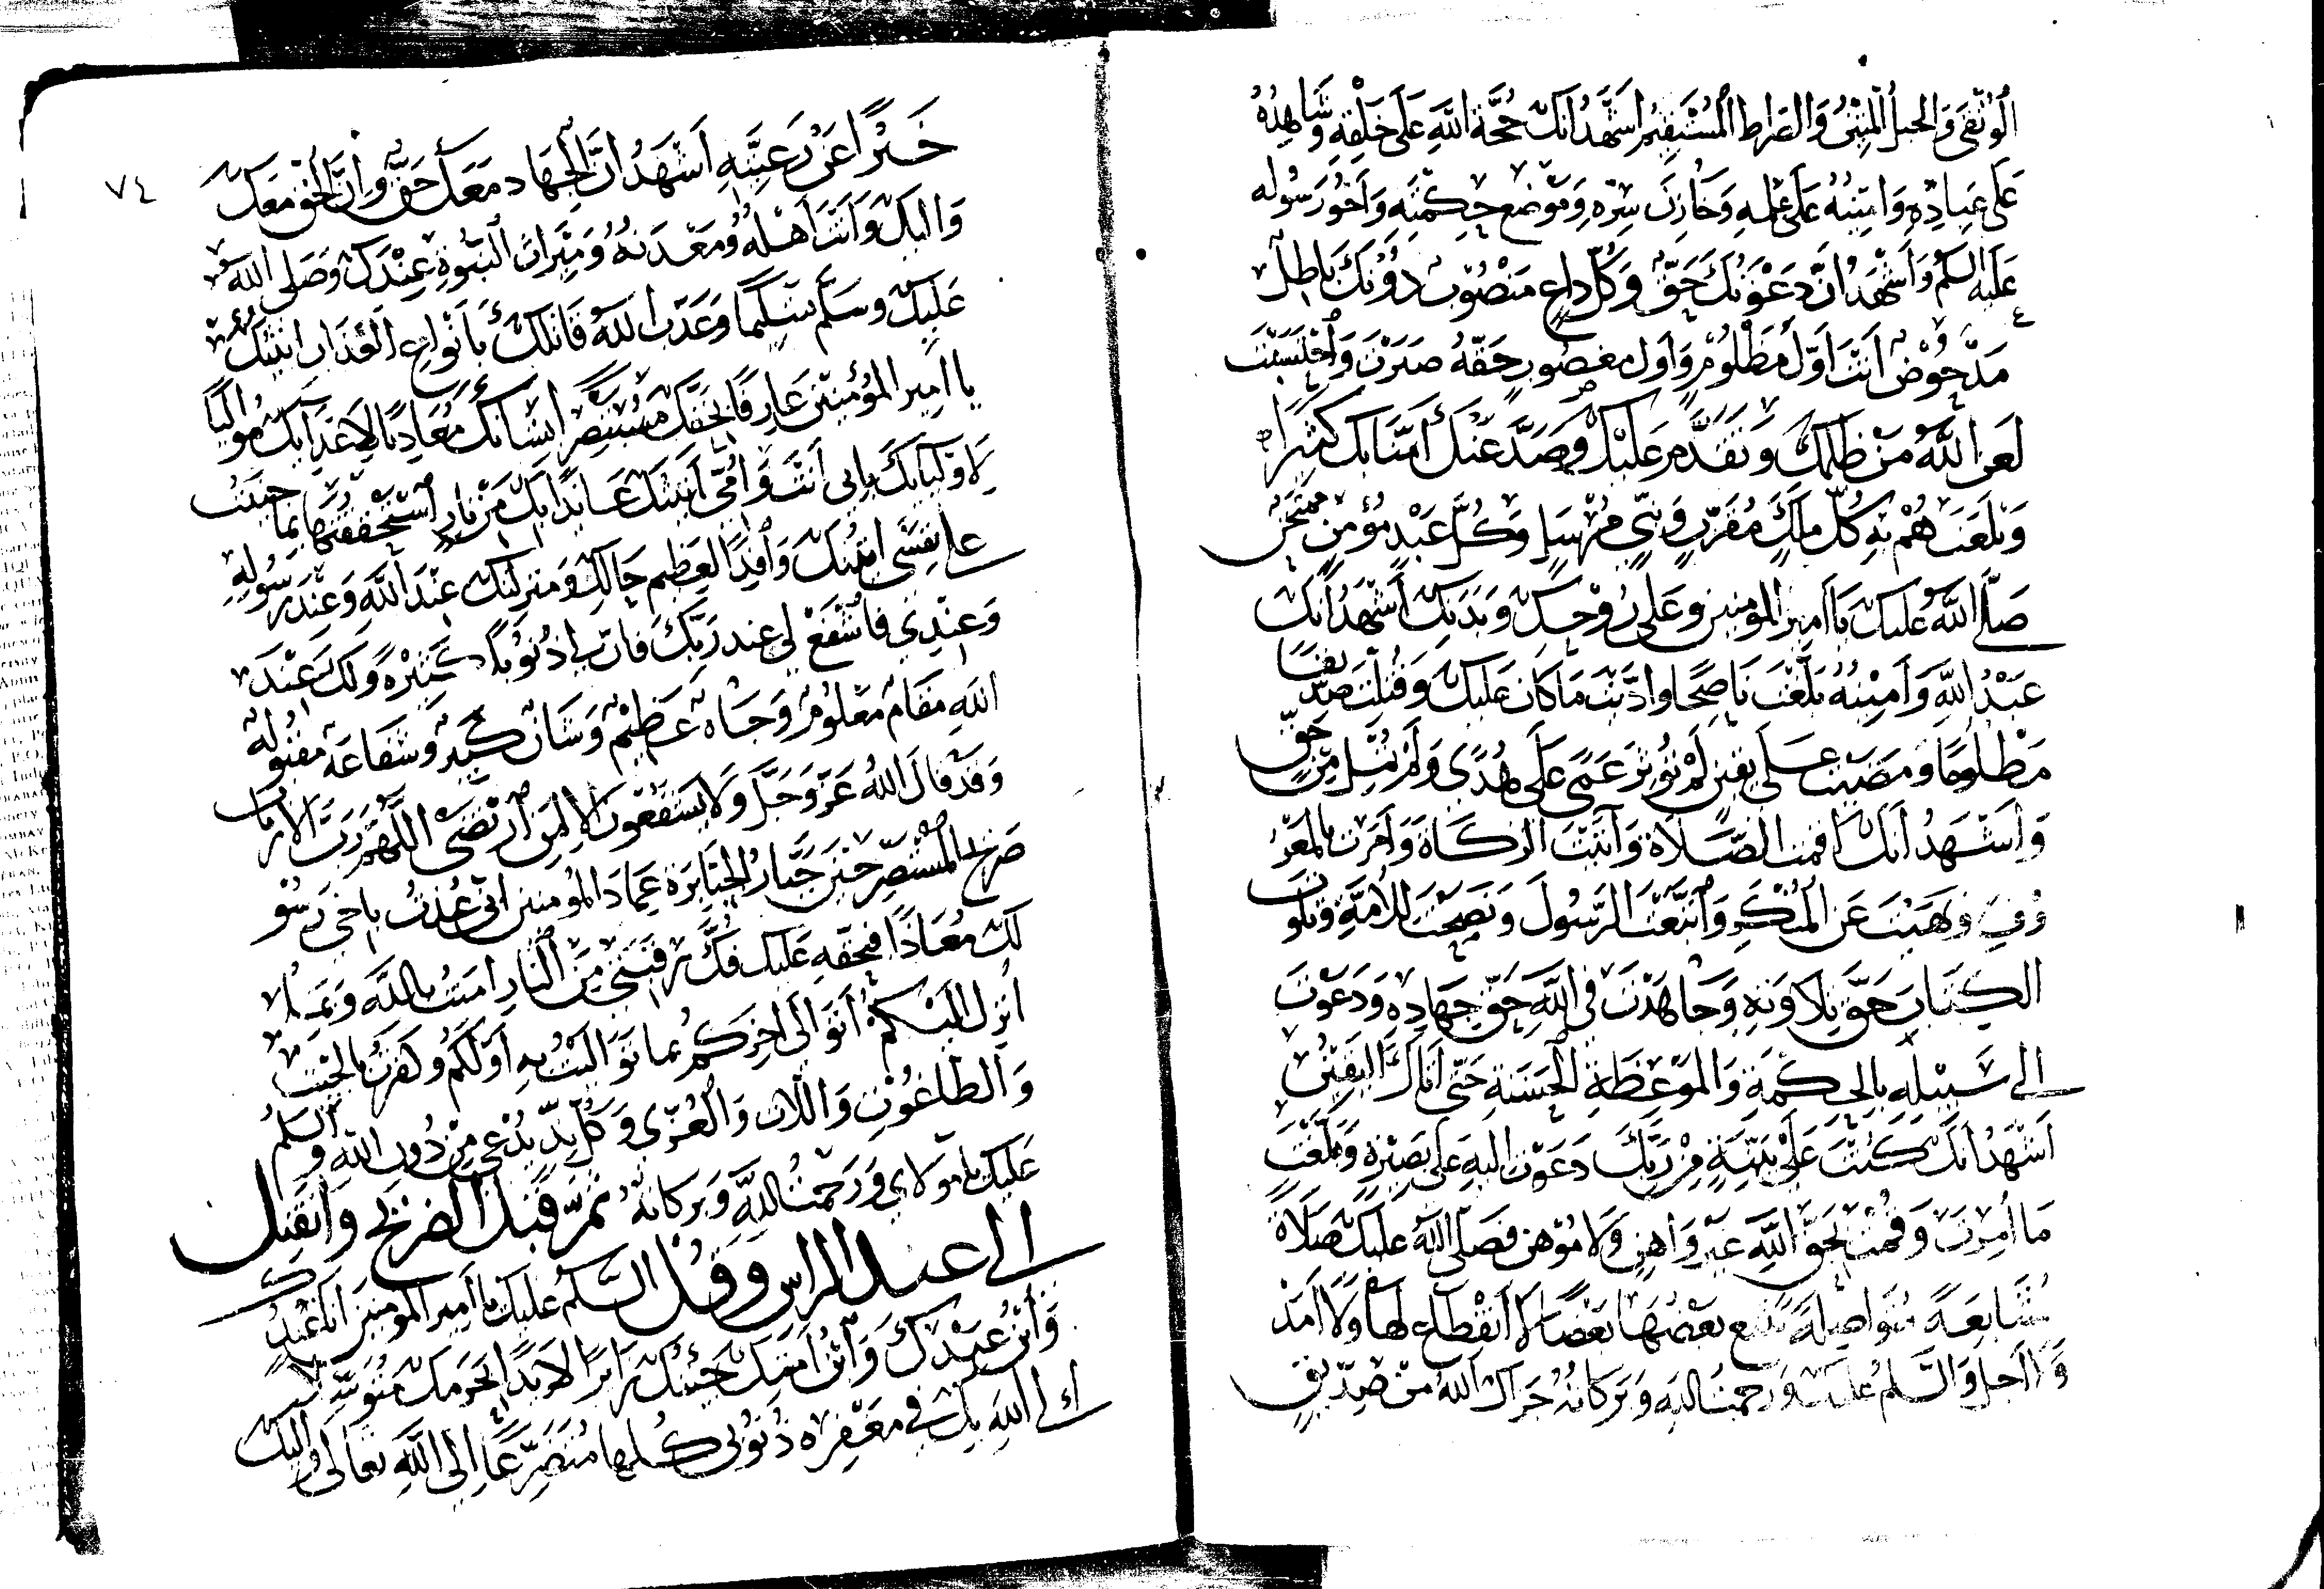 الوثقى والحبل المتين والصراط المستقيم اشهد انك حجة الله على خلقه وشاهده
على عباده وامينه على علمه وخازن سره وموضع حكمته واخو رسوله
عليه السلم واشهد ان دعوتك حق وكل داع منصوب دونك باطل
مدحوض انت اول مظلوم واول مغصوب حقه صبرت واحتسبت
لعن الله من ظلمك وتقدم عليك وصد عنك لعنا كثيرا
يلعنهم به كل ملك مقرب ونبي مرسل وكل عبد مؤمن ممتحن
صلى الله عليك يا امير المومنين وعلى روحك وبدنك اشهد انك
عبد الله وامينه بلغت ناصحا واديت ما كان عليك وقتلت صديقا
مظلوما ومضيت على يقين لم تؤثر عمى على هدى ولم تمل من حق
واشهد انك اقمت الصلاة واتيت الزكاة وامرت بالمعر
وف ونهيت عن المنكر واتبعت الرسول ونصحت للامة وتلوت
الكتاب حق تلاوته وجاهدت في الله حق جهاده ودعوت
الى سبيله بالحكمة والموعظة الحسنة حتى اتاك اليقين
اشهد انك كنت على بينة من ربك دعوت اليه على بصيرة وبلغت
ما امرت وقمت بحق الله غير واهن ولا موهن فصلى الله عليك صلاة
متتابعة متواصلة يتبع بعضها بعضا لا انقطاع لها ولا امد
ولا اجل والسلم عليك ورحمت الله وبركاته جزاك الله من صديق
٧٤
خيرا عن رعيته اشهد ان الجهاد معك حق وان الحق معك
واليك وانت اهله ومعدنه وميراث النبوة عندك وصلى الله
عليك وسلم تسليما وعذب الله قاتلك بانواع العذاب اتيتك
يا امير المؤمنين عارفا بحقك مستبصرا بشانك معاديا لاعدايك مواليا
لاوليايك بابي انت وامي اتيتك عايذا بك من نار استحقها بما جنيت
على نفسي اتيتك وافدا لعظيم حالك ومنزلتك عند الله وعند رسوله
وعندي فاشفع لي عند ربك فان لي ذنوبا كثيرة ولك عند
الله مقام معلوم وجاه عظيم وشان كبير وشفاعة مقبولة
وقد قال الله عز وجل ولا يشفعون الا لمن ارتضى اللهم رب الارباب
صريخ المستصرخين جبار الجبابرة عماد المومنين اني عذت باخي رسو
لك معاذا فبحقه عليك فك رقبتي من النار امنت بالله وبما
انزل اليكم اتوالى اخركم بما توالیت به اولكم وكفرت بالجبت
والطاغوت واللات والعزى وكل ند يدعى من دون الله والسلم
عليك يا مولاي ورحمت الله وبركاته ثم قبل الضريح وانتقل
الى عند الراس وقل السلم عليك يا امير المومنين انا عبدك
وابن عبدك وابن امتك جئتك زايرا لايذا بحرمك متوسلا
الى الله بك في مغفرة ذنوبي كلها متضرعا الى الله تعالى واليك